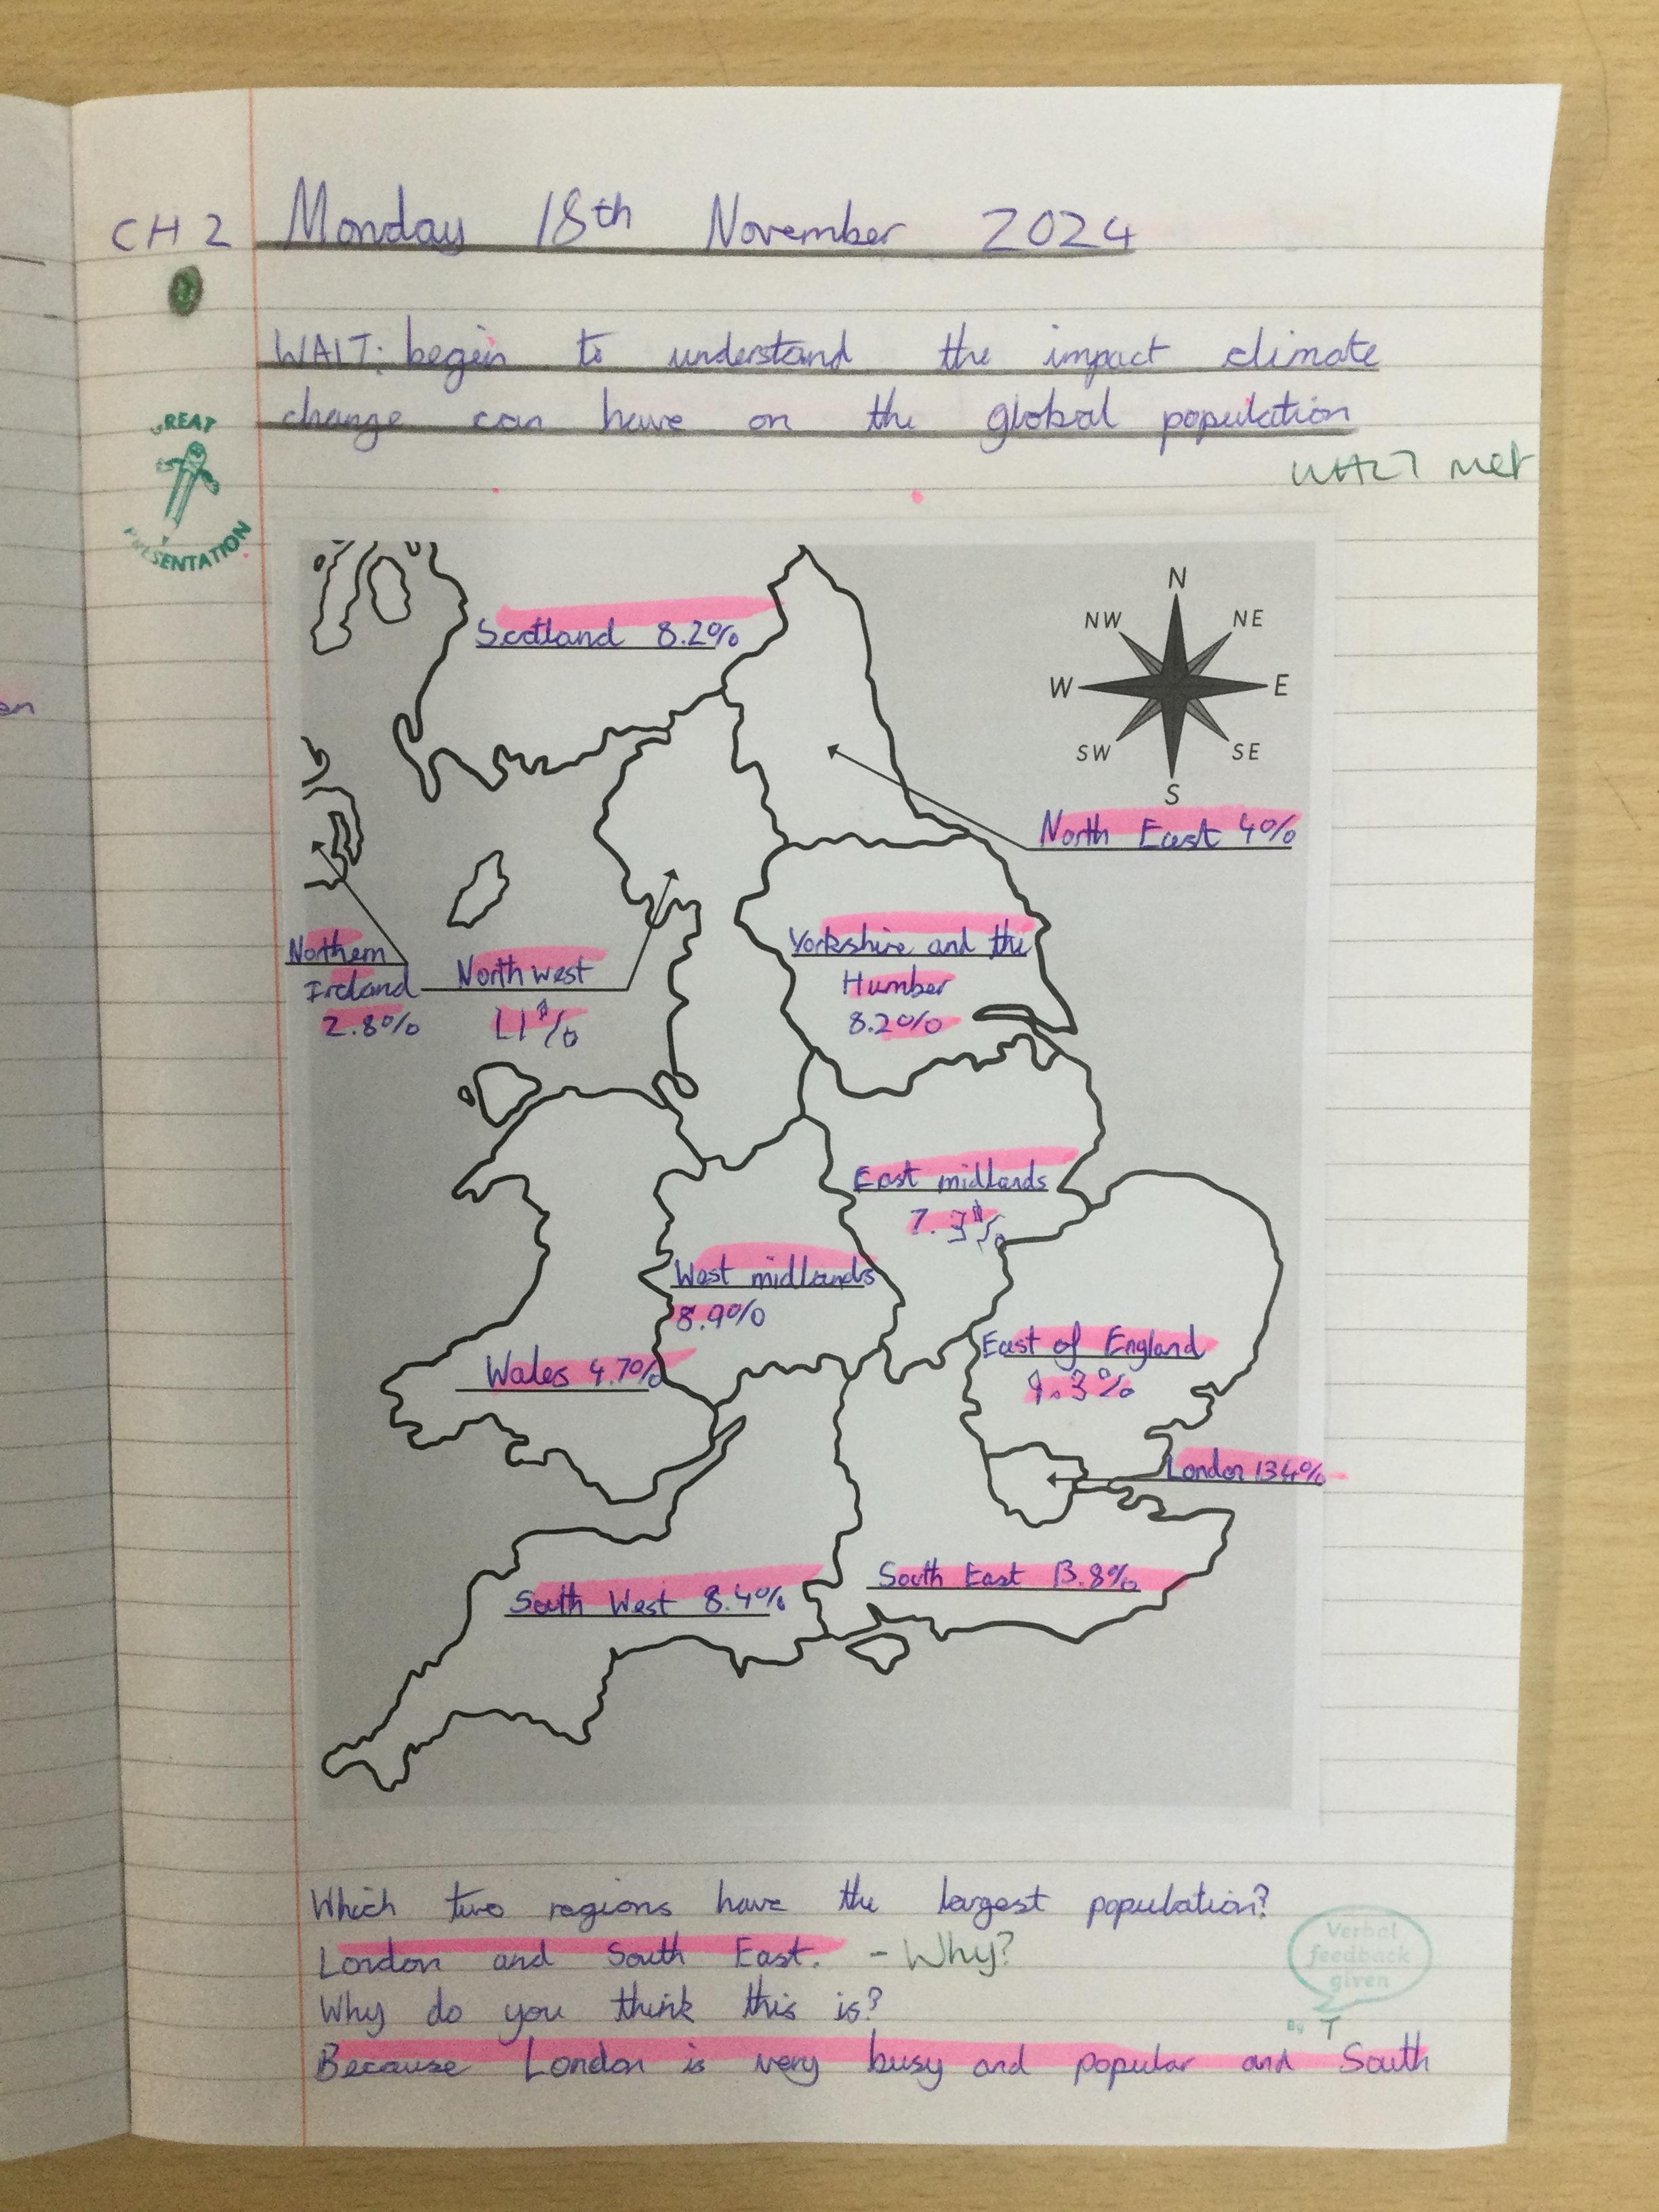 CH 2 Monday 18th November 2024
WALT: begin to understand the impact climate
change can have on the global population
WALT met
GREAT
PRESENTATION
N
NW NE
W E
SW SE
S
Scotland 8.2%
North East 4%
Northern
Ireland
2.8%
North west
11%
Yorkshire and the
Humber
8.2%
East midlands
7.3%
West midlands
8.9%
Wales 4.7%
East of England
9.3%
London 13.4%
South East 13.8%
South West 8.4%
Which two regions have the largest population?
London and South East. - Why?
Verbal
feedback
given
By T
Why do you think this is?
Because London is very busy and popular and South